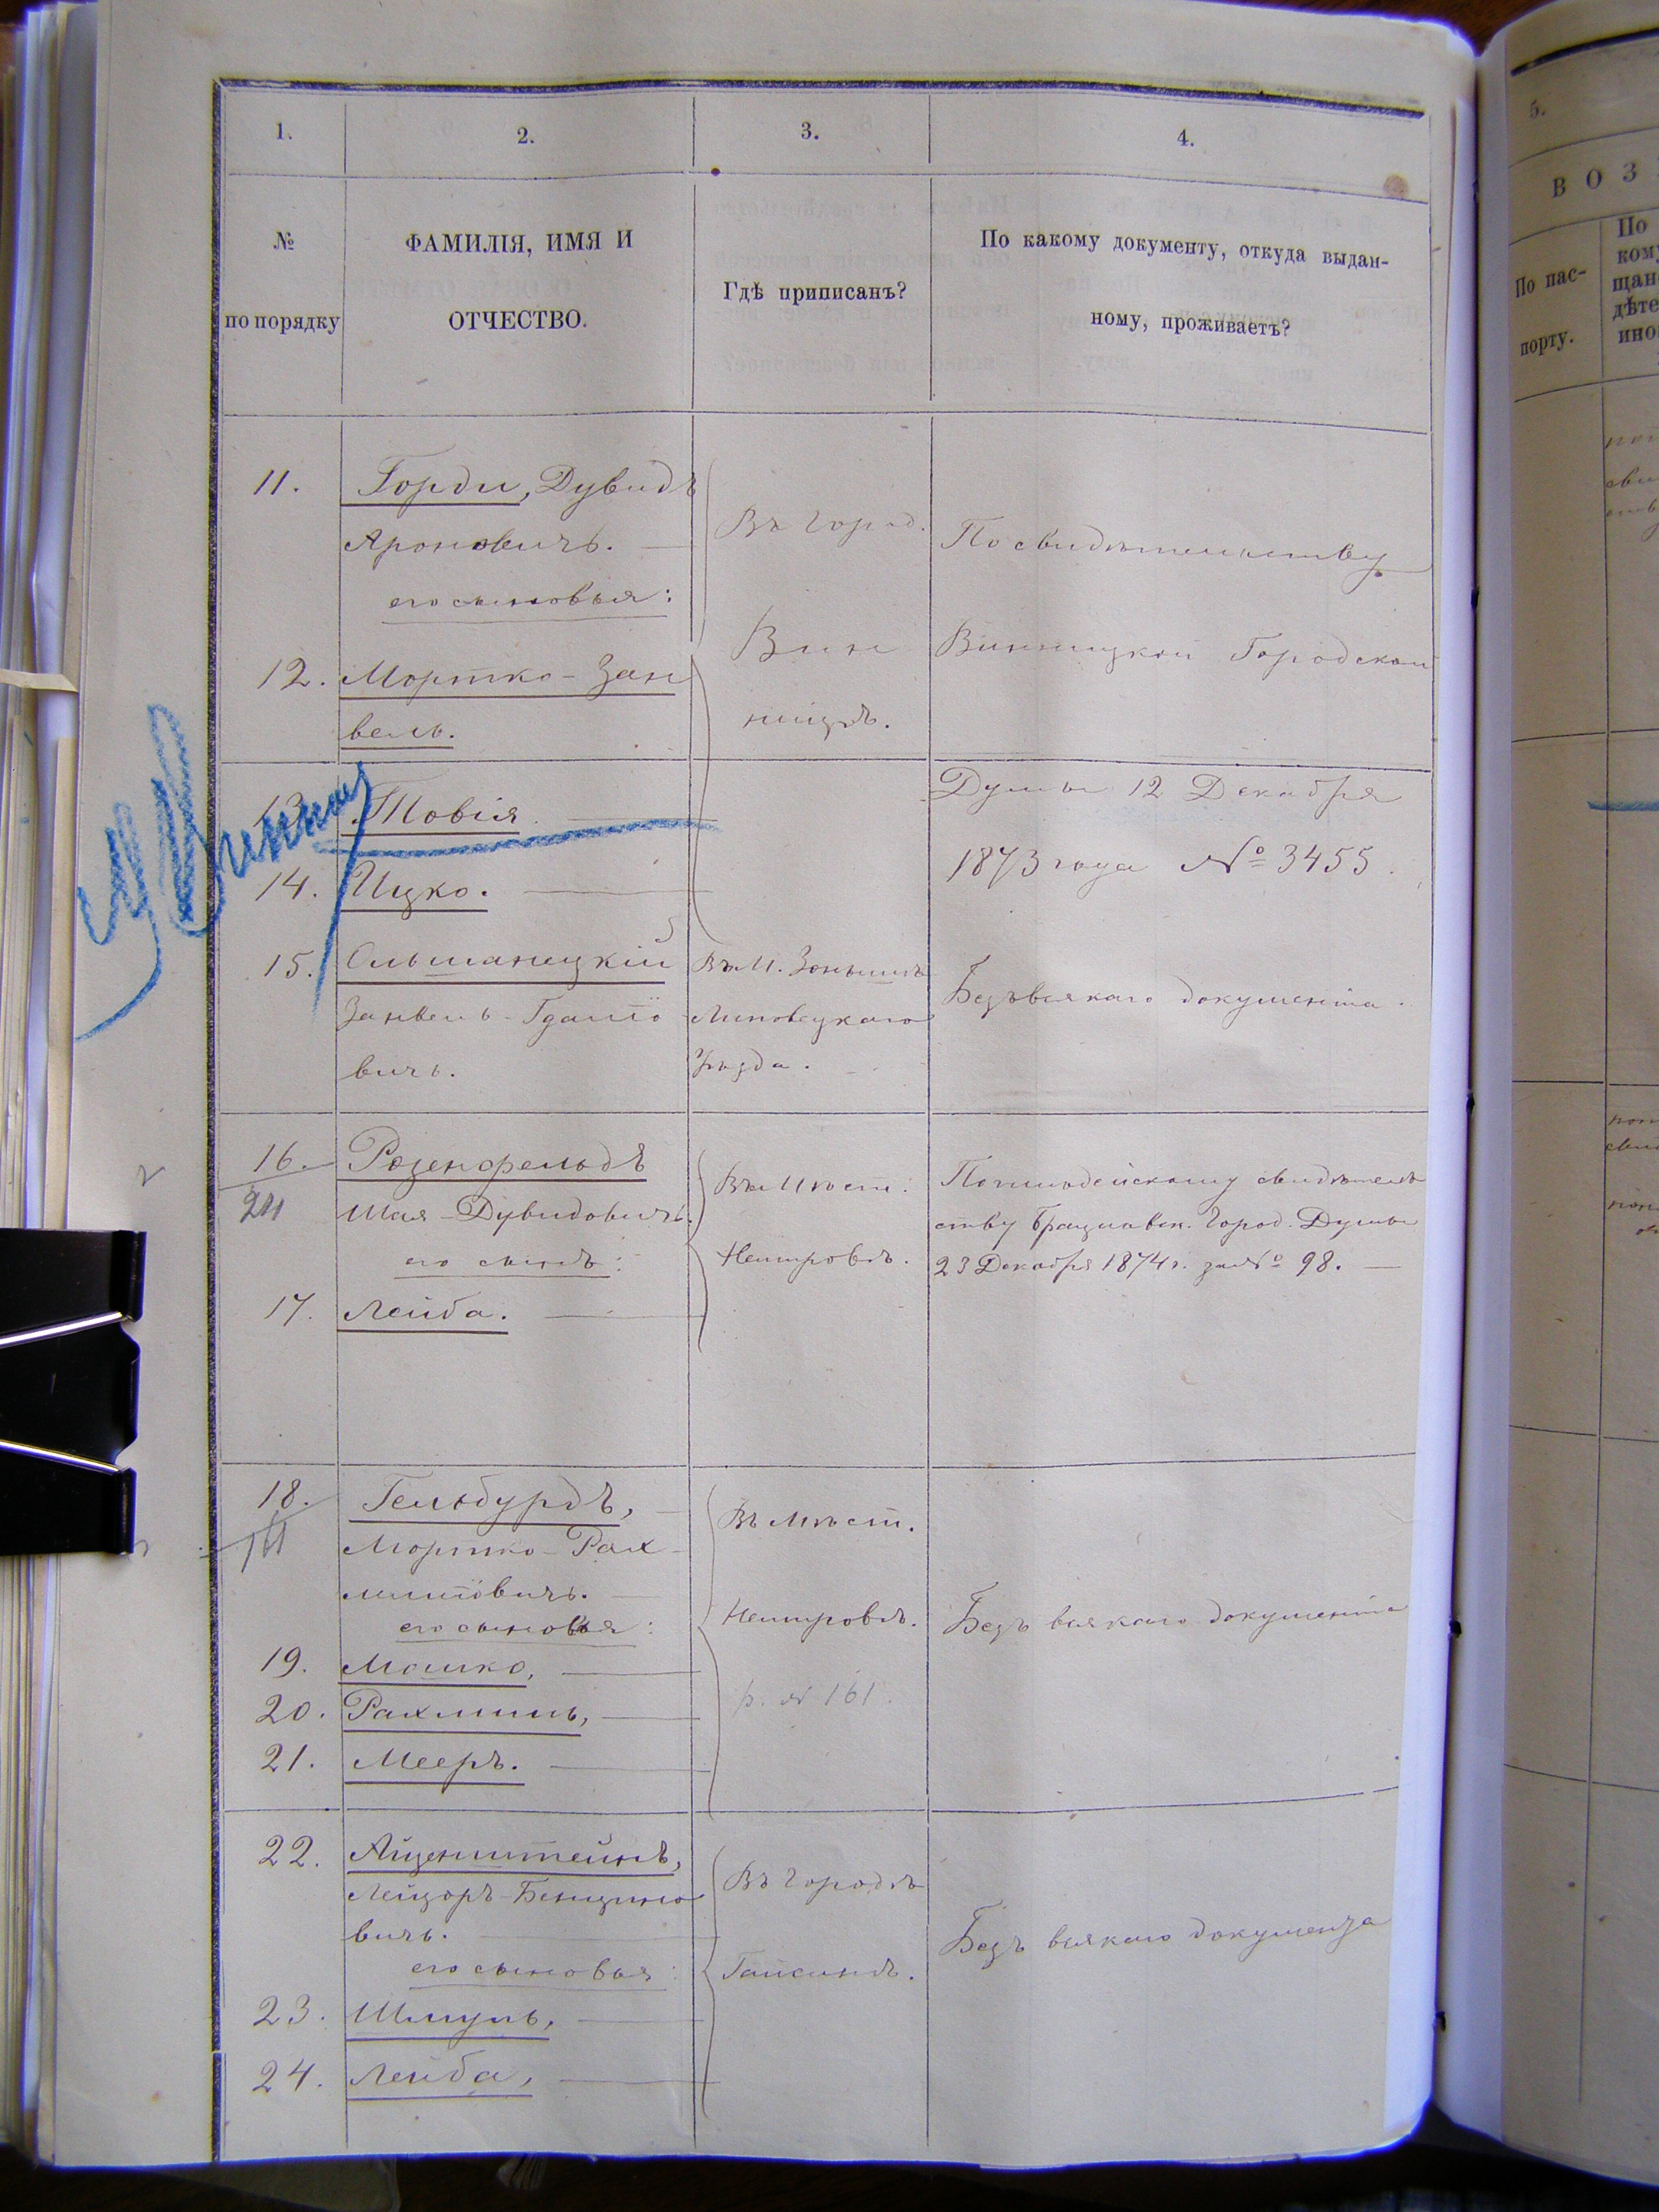 1.
2.
3.
4.
№
по порядку
ФАМИЛІЯ, ИМЯ И
ОТЧЕСТВО.
Гдѣ приписанъ?
По какому документу, откуда выдан-
ному, проживаетъ?
11. Горди, Дувидъ
Ароновичъ.
его сыновья:
12. Мортко-Зан
вель.
Въ город.
Вин
ницѣ.
По свидѣтельству
Винницкой Городской
Думы 12 Декабря
1873 года № 3455.
13. Товія.
14. Ицко.
15. Ольшанецкій
Занвель-
вичъ.
Въ М.
Липовецкаго
Уѣзда.
Безъ всякаго документа.
16. Розенфельдъ
24
Шая-Дувидовичъ.
его сынъ:
17. Лейба.
Въ Мѣст.
Немировѣ.
свидѣтель
ству Брацлавск. Город. Думы
23 Декабря 1874 г. за № 98.
18. Гельбурдъ,
161
Мортко-Рах
миловичъ.
его сыновья:
19. Мошко,
20. Рахмиль,
21. Мееръ.
Въ Мѣст.
Немировѣ.
р. № 161.
Безъ всякаго документа
22. Айценштейнъ,
Лейзоръ-Бенцио
вичъ.
его сыновья:
23. Шмуль,
24. Лейба,
Въ Городѣ
Гайсинѣ.
Безъ всякаго документа
5.
ВОЗ
По пас-
порту.
По
ком
щан
дѣте
ино